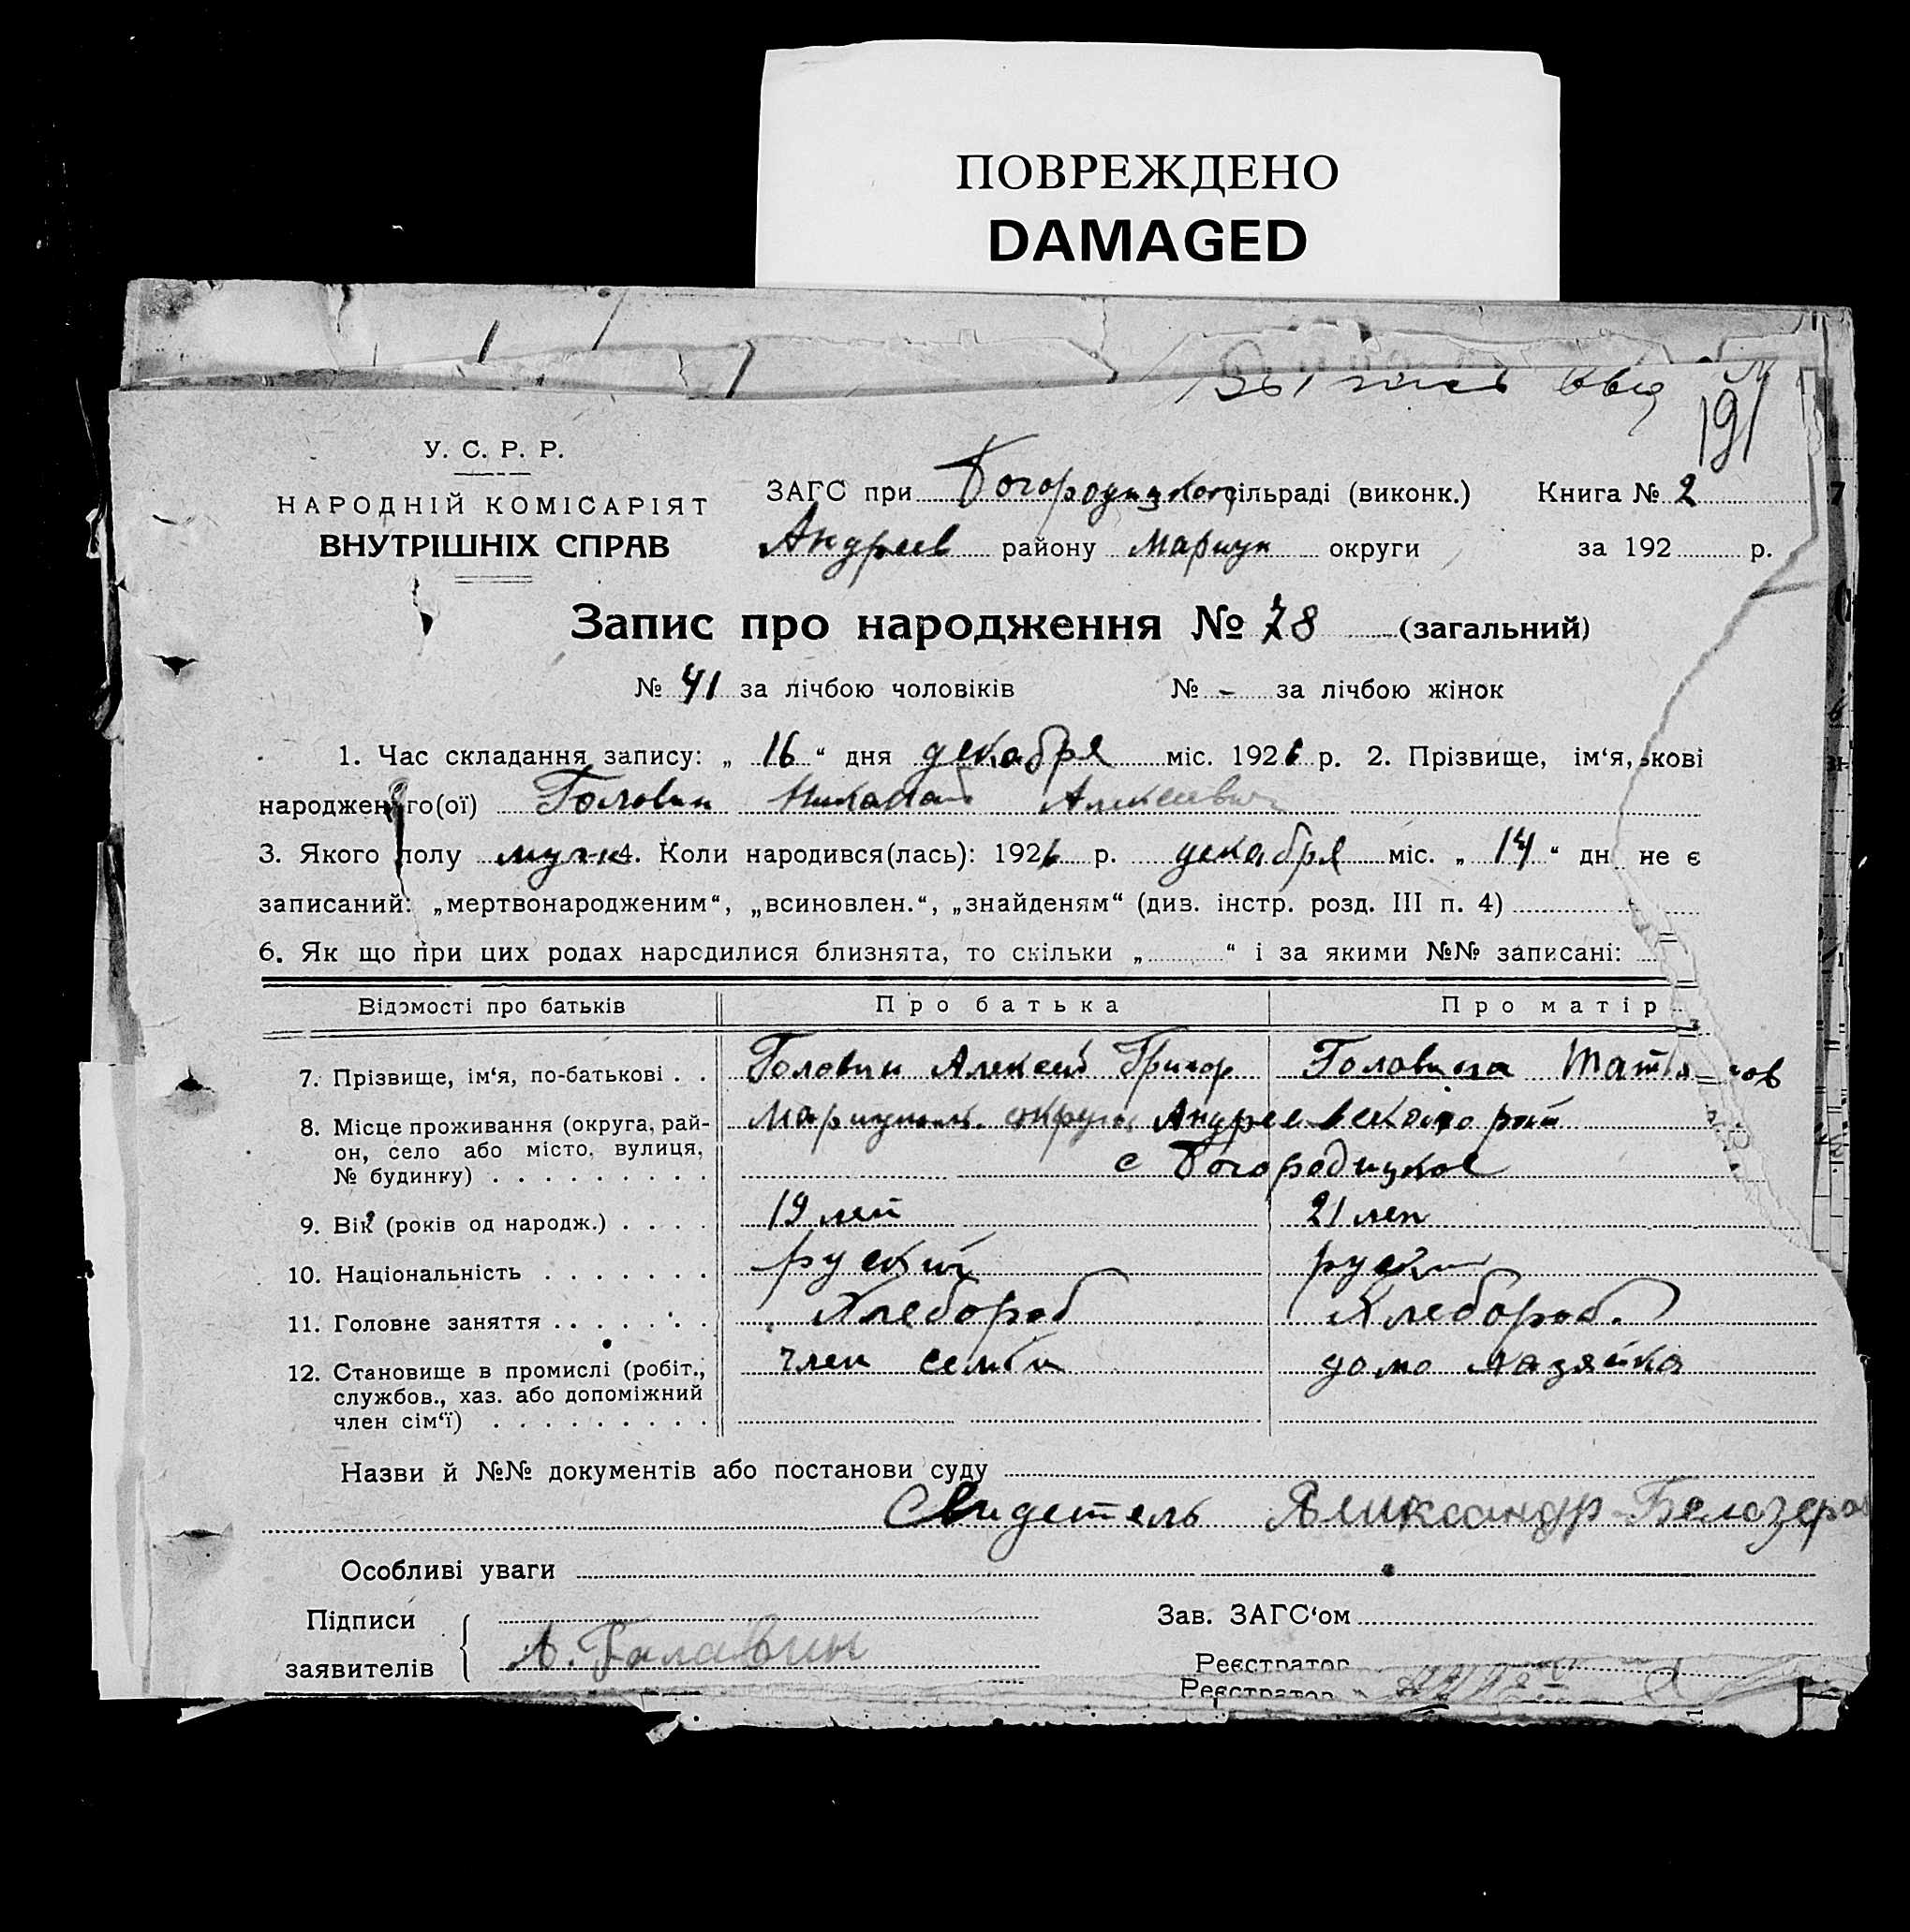 ПОВРЕЖДЕНО
DAMAGED
191
У. С. Р. Р.
НАРОДНІЙ КОМІСАРІЯТ
ВНУТРІШНІХ СПРАВ
ЗАГС при Богородицком сільраді (виконк.) Книга № 2
Андреев району Мариуп округи за 192 р.
Запис про народження № 78 (загальний)
№ 41 за лічбою чоловіків № - за лічбою жінок
1. Час складання запису: „ 16 “ дня декабря міс. 1926 р. 2. Прізвище, ім‘я, кові
народженого(ої) Головин Николай Алексеевич
3. Якого полу мужс 4. Коли народився(лась): 1926 р. декабря міс. „ 14 “ дн не є
записаний: „мертвонародженим“, „всиновлен.“, „знайденям“ (див. інстр. розд. III п. 4)
6. Як що при цих родах народилися близнята, то скільки „ “ і за якими №№ записані:
Відомості про батьків Про батька Про матір
7. Прізвище, ім‘я, по-батькові . . Головин Алексей Григор Головина Татья ов
8. Місце проживання (округа, рай- Мариуполь. округа Андреевского рай
он, село або місто, вулиця,
№ будинку) . . . . . . . . . с Богородицкое
9. Вік (років од народж.) . . . . 19 лет 21 лет
10. Національність . . . . . . . руский руская
11. Головне заняття . . . . . . . Хлебороб Хлебороб.
12. Становище в промислі (робіт., член семьи домо хазяйка
службов., хаз. або допоміжний
член сім‘ї) . . . . . . . . .
Назви й №№ документів або постанови суду
Свидетель Аликсандр Белозеров
Особливі уваги
Підписи Зав. ЗАГС‘ом
заявителів А. Галавин
Реєстратор
Реєстратор